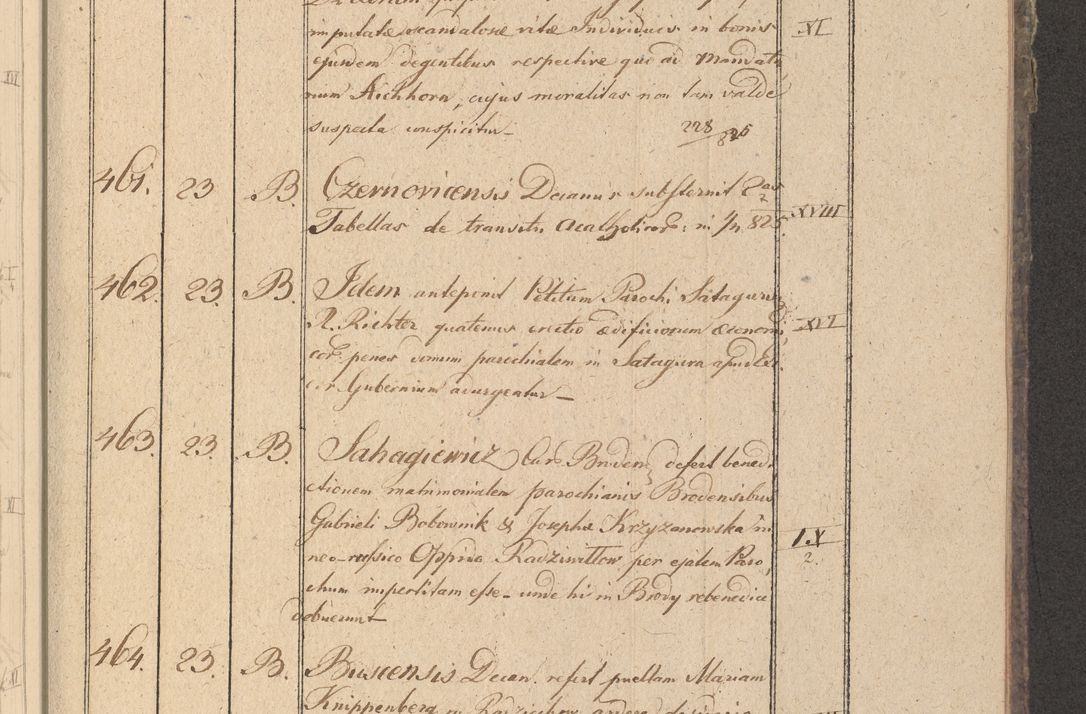 imputatæ scandalosæ vitæ Individuis in bonis XI
ejusdem degentibus respective quo ad Mandata
rium Aichhorn, cujus moralitas non tam valde
suspecta conspicitur_ 228/825
461. 23 B. Czernovicensis Decanus substernit 2as
Tabellas de transitu Acatholicor: in 1/2 825. XVIII
462. 23. B. Idem anteponit Petitum Parochi Satagurn
A. Richter quatenus erectio ædificiorum œconomi, XVI
cor. penes domum parochialem in Satagura apud Ex
Gubernium adurgeatur_
463. 23. B. Sahagiewicz Cur. Broden, defert benedi
ctionem matrimonialem parochianis Brodensibus
Gabrieli Bobownik & Josephæ Krzyzanowska in
neo-russico Oppido Radziwittow per ejatem Paro, IX
chum impertitam esse_ unde hi in Brody rebenedici 2.
debuerunt_
464. 23. B. Buscensis Decan. refert puellam Mariam
Knippenberg in Radziechow